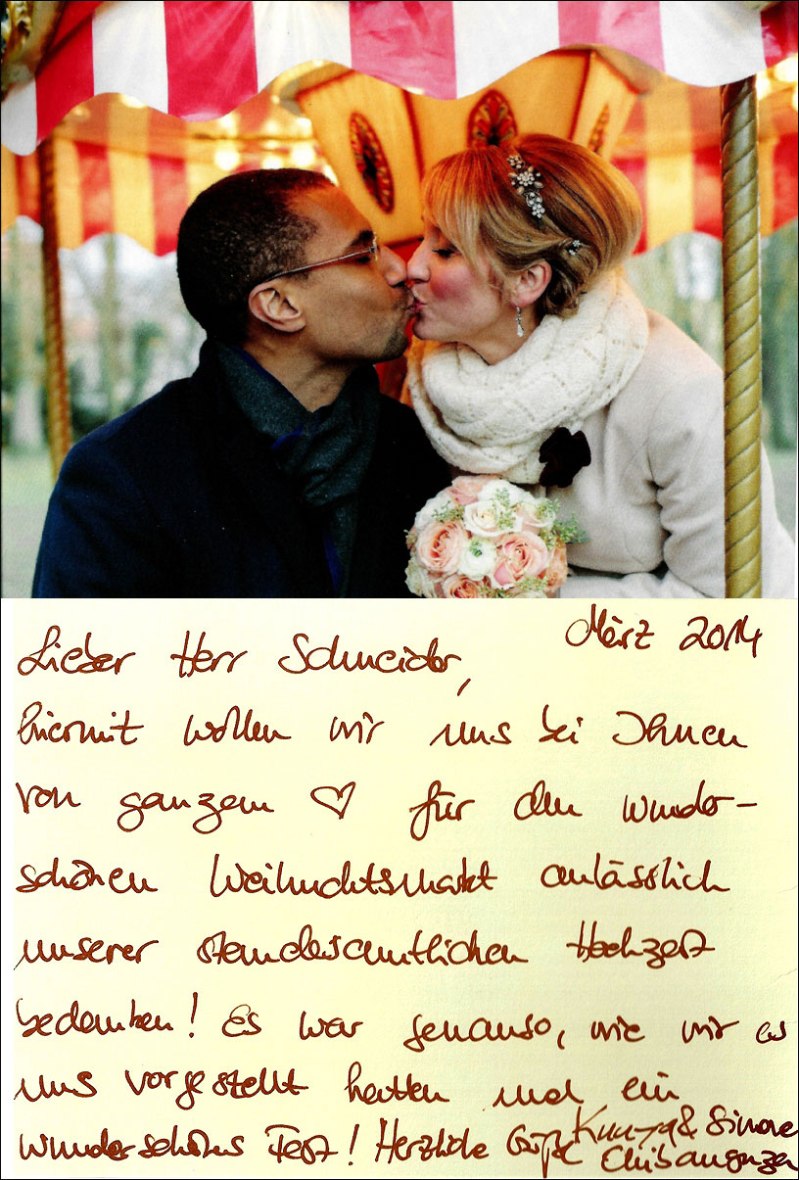 März 2014
Lieber Herr Schneider,
hiermit wollen wir uns bei Ihnen
von ganzem ♡ für den wunder-
schönen Weihnachtsmarkt anlässlich
unserer standesamtlichen Hochzeit
bedanken! Es war genauso, wie wir es
uns vorgestellt hatten und ein
wunderschönes Fest! Herzliche Grüße
& Simone